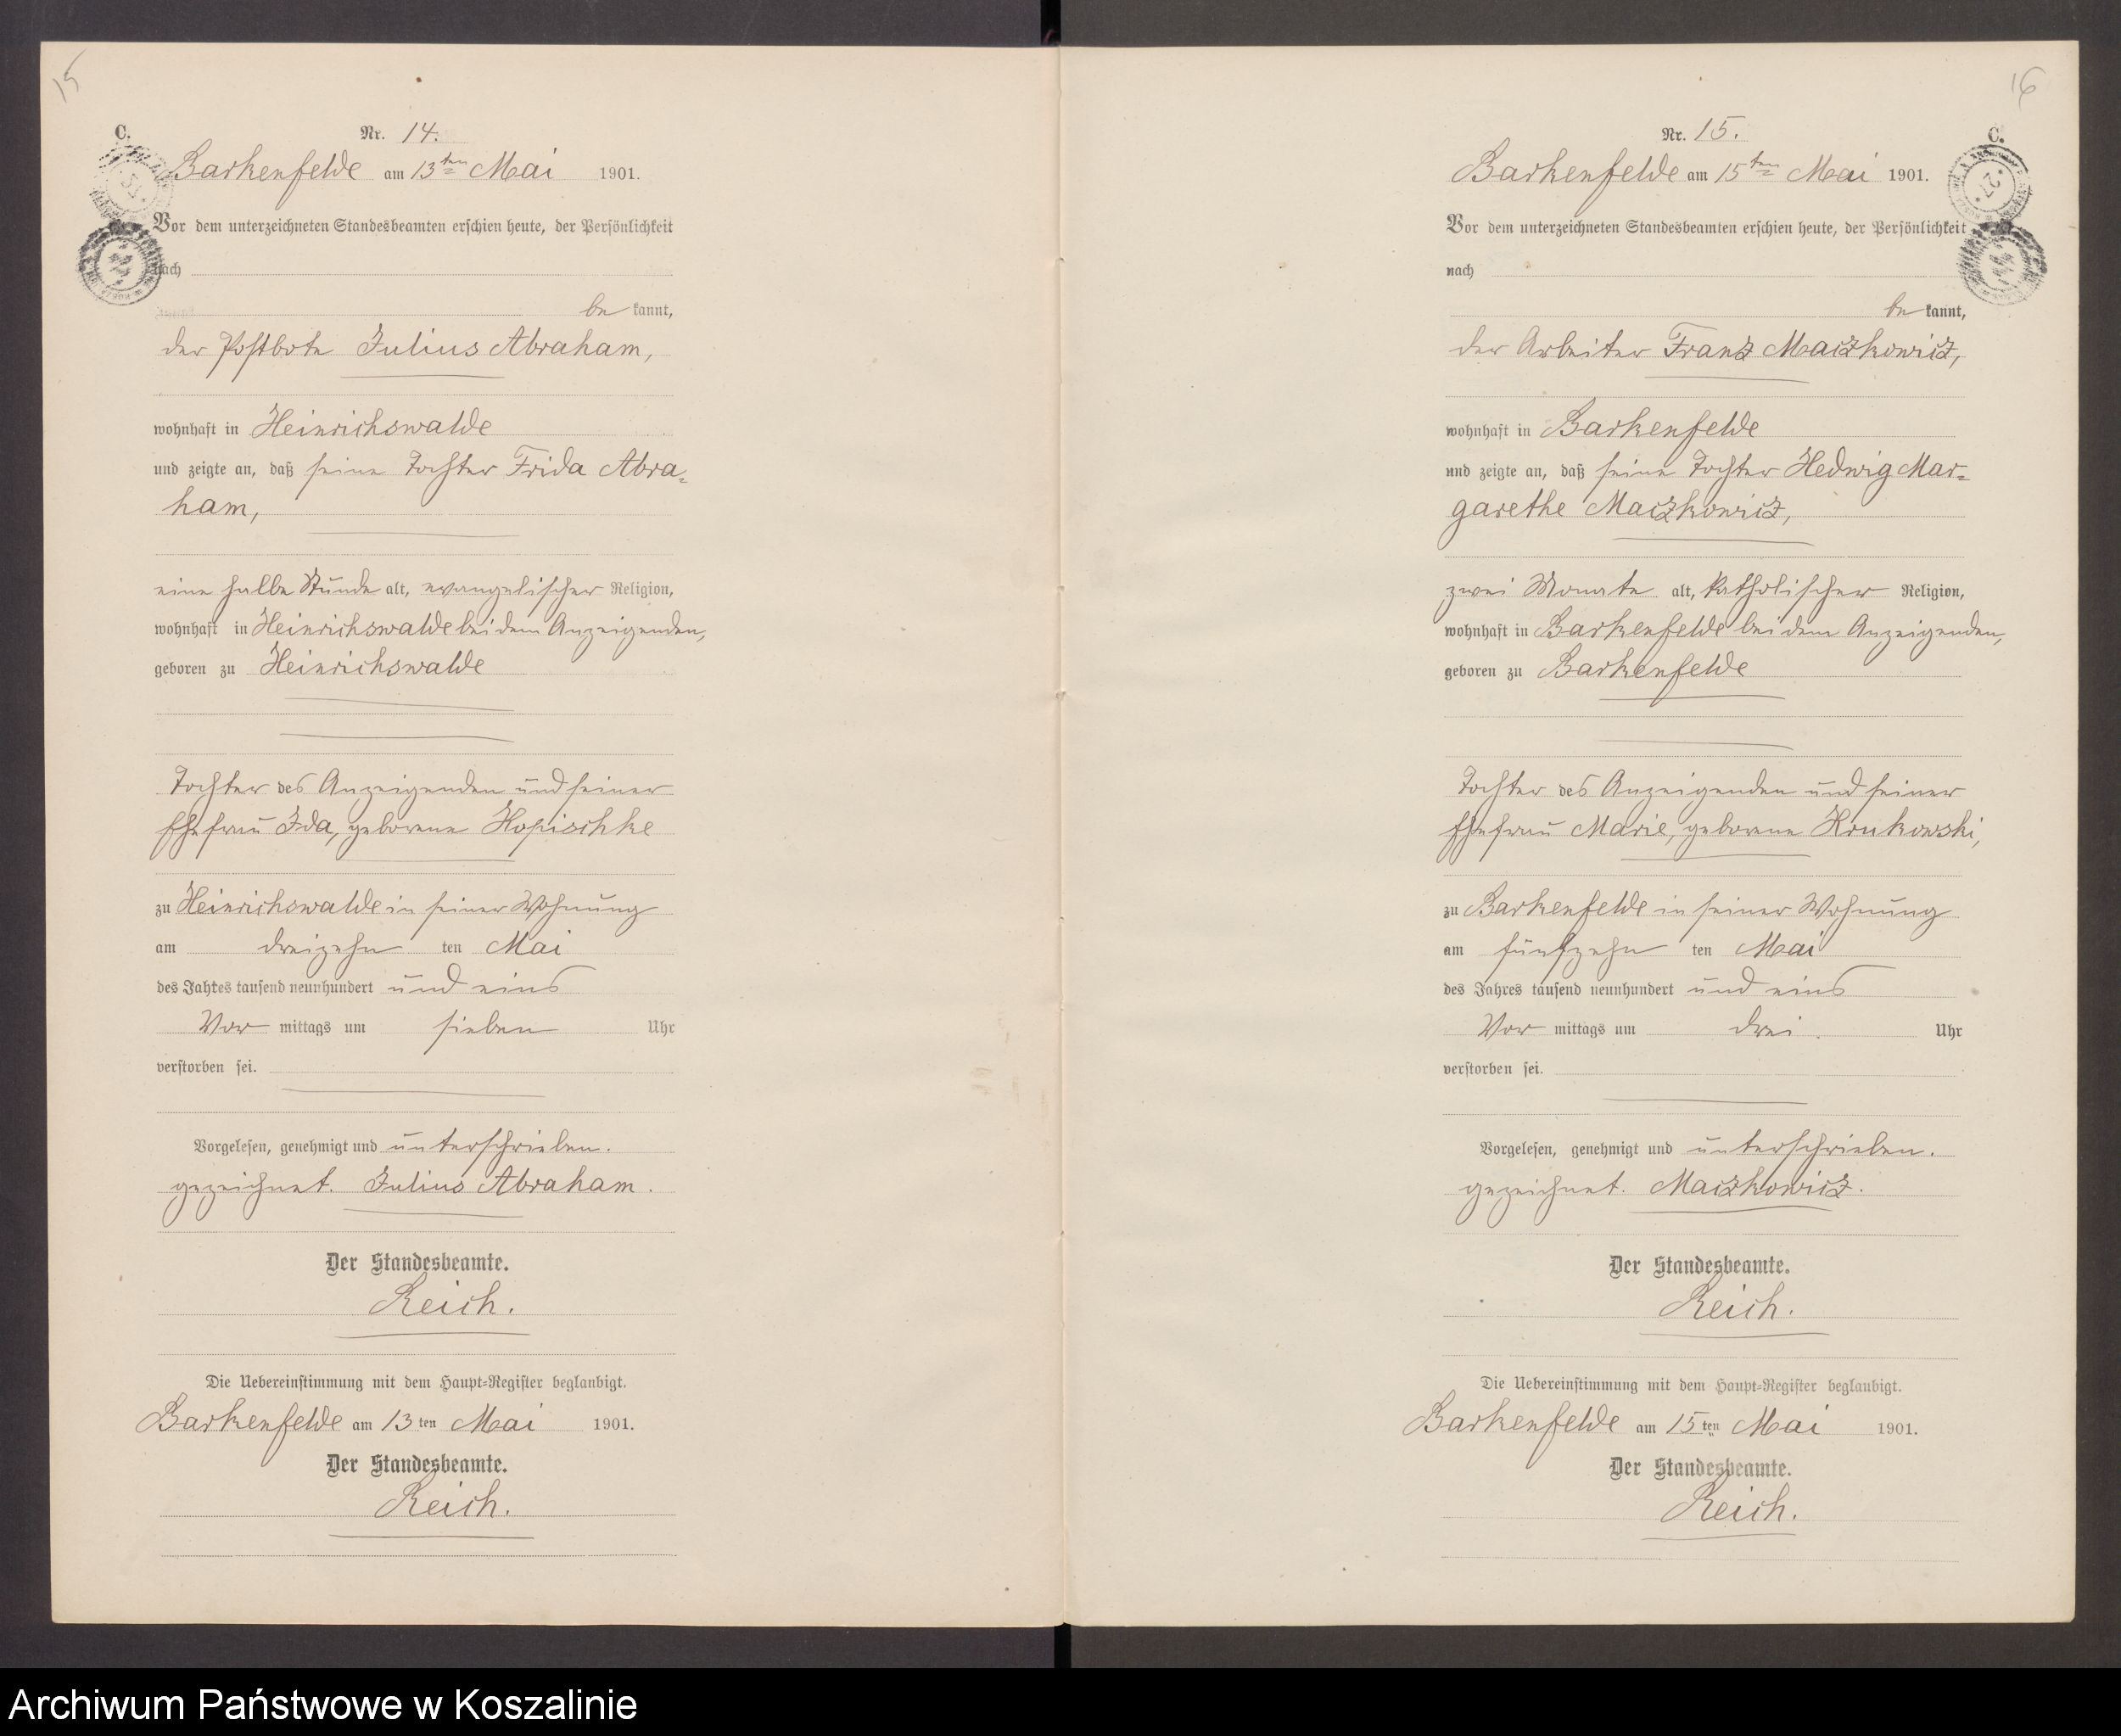 15
C.
Nr. 14.
Barkenfelde am 13ten Mai 1901.
Vor dem unterzeichneten Standesbeamten erschien heute, der Persönlichkeit
nach
be kannt,
der Postbote Julius Abraham,
wohnhaft in Heinrichswalde
und zeigte an, daß seine Tochter Frida Abra-
ham,
eine halbe Stunde alt, evangelischer Religion,
wohnhaft in Heinrichswalde bei dem Anzeigenden,
geboren zu Heinrichswalde
Tochter des Anzeigenden und seiner
Ehefrau Ida, geborene Hopischke
zu Heinrichswalde in seiner Wohnung
am dreizehn ten Mai
des Jahres tausend neunhundert und eins
Vor mittags um sieben Uhr
verstorben sei.
Vorgelesen, genehmigt und unterschrieben.
gezeichnet. Julius Abraham.
Der Standesbeamte.
Reich.
Die Uebereinstimmung mit dem Haupt-Register beglaubigt.
Barkenfelde am 13 ten Mai 1901.
Der Standesbeamte.
Reich.
16
C.
Nr. 15.
Barkenfelde am 15ten Mai 1901.
Vor dem unterzeichneten Standesbeamten erschien heute, der Persönlichkeit
nach
be kannt,
der Arbeiter Franz Maczkowicz,
wohnhaft in Barkenfelde
und zeigte an, daß seine Tochter Hedwig Mar-
garethe Maczkowicz,
zwei Monate alt, katholischer Religion,
wohnhaft in Barkenfelde bei dem Anzeigenden,
geboren zu Barkenfelde
Tochter des Anzeigenden und seiner
Ehefrau Marie, geborene Krukowski,
zu Barkenfelde in seiner Wohnung
am fünfzehn ten Mai
des Jahres tausend neunhundert und eins
Vor mittags um drei Uhr
verstorben sei.
Vorgelesen, genehmigt und unterschrieben.
gezeichnet. Maczkowicz.
Der Standesbeamte.
Reich.
Die Uebereinstimmung mit dem Haupt-Register beglaubigt.
Barkenfelde am 15 ten Mai 1901.
Der Standesbeamte.
Reich.
Archiwum Państwowe w Koszalinie